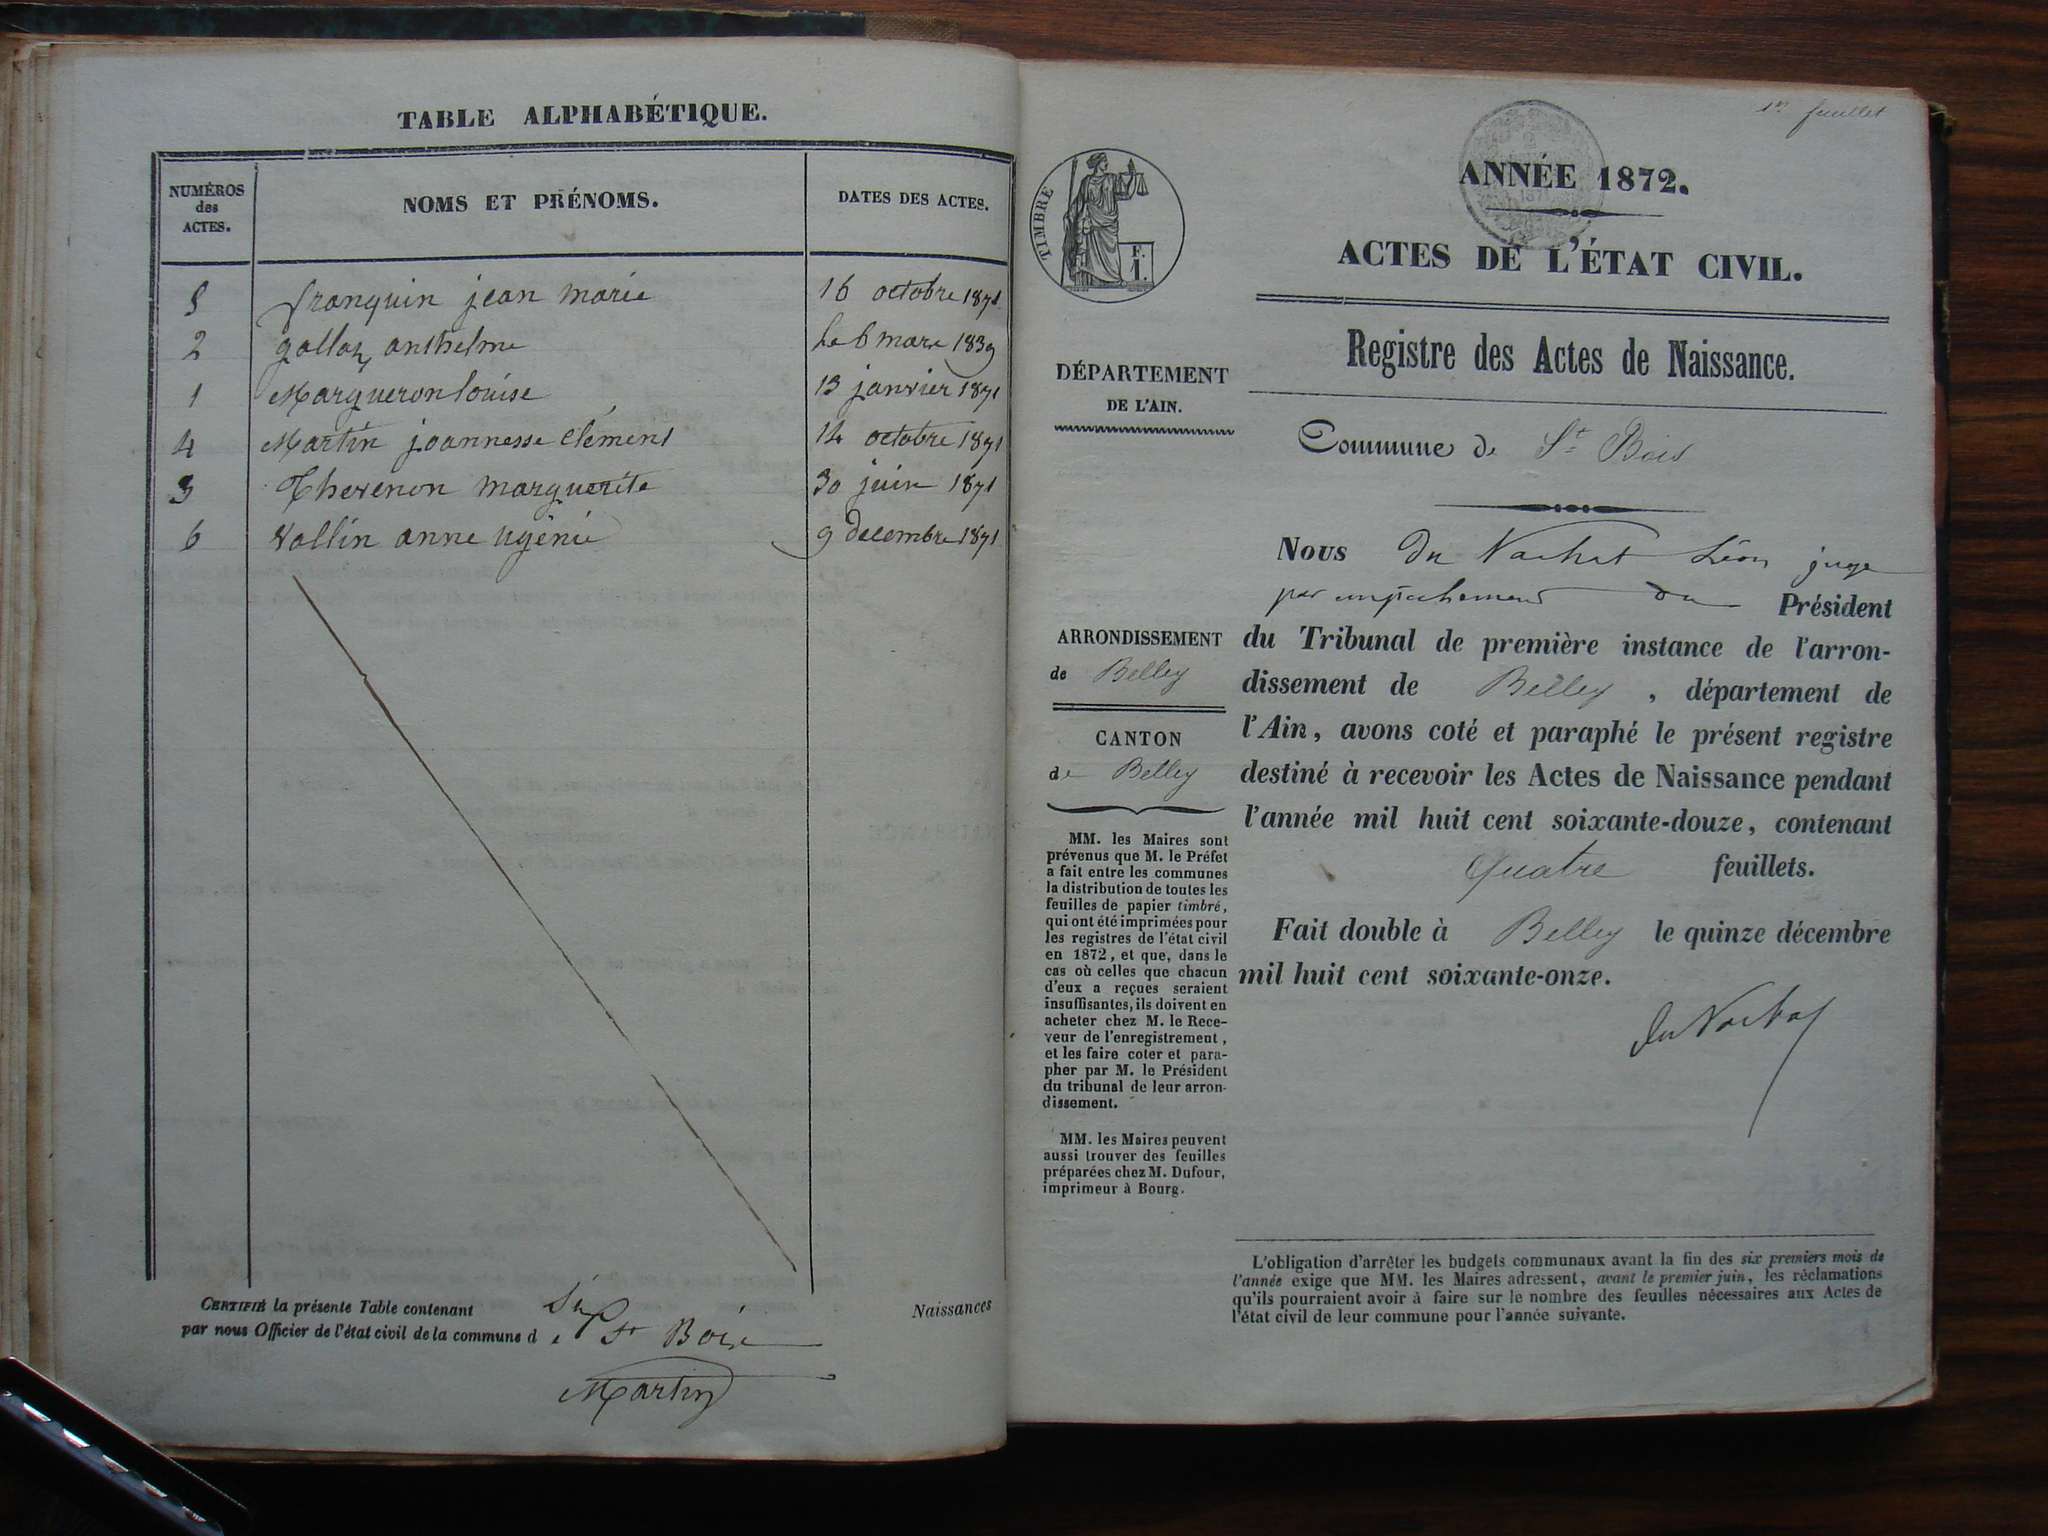 TABLE ALPHABÉTIQUE.
NUMÉROS des ACTES. NOMS ET PRÉNOMS. DATES DES ACTES.
5 franquin jean marie 16 octobre 1871
2 gallay anthelme le 6 mars 1839
1 Margueron louise 13 janvier 1871
4 Martin joannesse clément 14 octobre 1871
3 Thevenon marguerite 30 juin 1871
6 Vallin anne ugénie 9 decembre 1871
CERTIFIÉ la présente Table contenant Six Naissances
par nous Officier de l'état civil de la commune d e St Bois
Martin
1er feuillet
TIMBRE
F.
1.
ANNÉE 1872.
ACTES DE L'ÉTAT CIVIL.
Registre des Actes de Naissance.
DÉPARTEMENT
DE L'AIN.
Commune de St Bois
ARRONDISSEMENT
de Belley
CANTON
de Belley
MM. les Maires sont
prévenus que M. le Préfet
a fait entre les communes
la distribution de toutes les
feuilles de papier timbré,
qui ont été imprimées pour
les registres de l'état civil
en 1872, et que, dans le
cas où celles que chacun
d'eux a reçues seraient
insuffisantes, ils doivent en
acheter chez M. le Rece-
veur de l'enregistrement,
et les faire coter et para-
pher par M. le Président
du tribunal de leur arron-
dissement.
MM. les Maires peuvent
aussi trouver des feuilles
préparées chez M. Dufour,
imprimeur à Bourg.
Nous Du Vachat Léon juge
par empêchement du Président
du Tribunal de première instance de l'arron-
dissement de Belley, département de
l'Ain, avons coté et paraphé le présent registre
destiné à recevoir les Actes de Naissance pendant
l'année mil huit cent soixante-douze, contenant
Quatre feuillets.
Fait double à Belley le quinze décembre
mil huit cent soixante-onze.
Du Vachat
L'obligation d'arrêter les budgets communaux avant la fin des six premiers mois de
l'année exige que MM. les Maires adressent, avant le premier juin, les réclamations
qu'ils pourraient avoir à faire sur le nombre des feuilles nécessaires aux Actes de
l'état civil de leur commune pour l'année suivante.